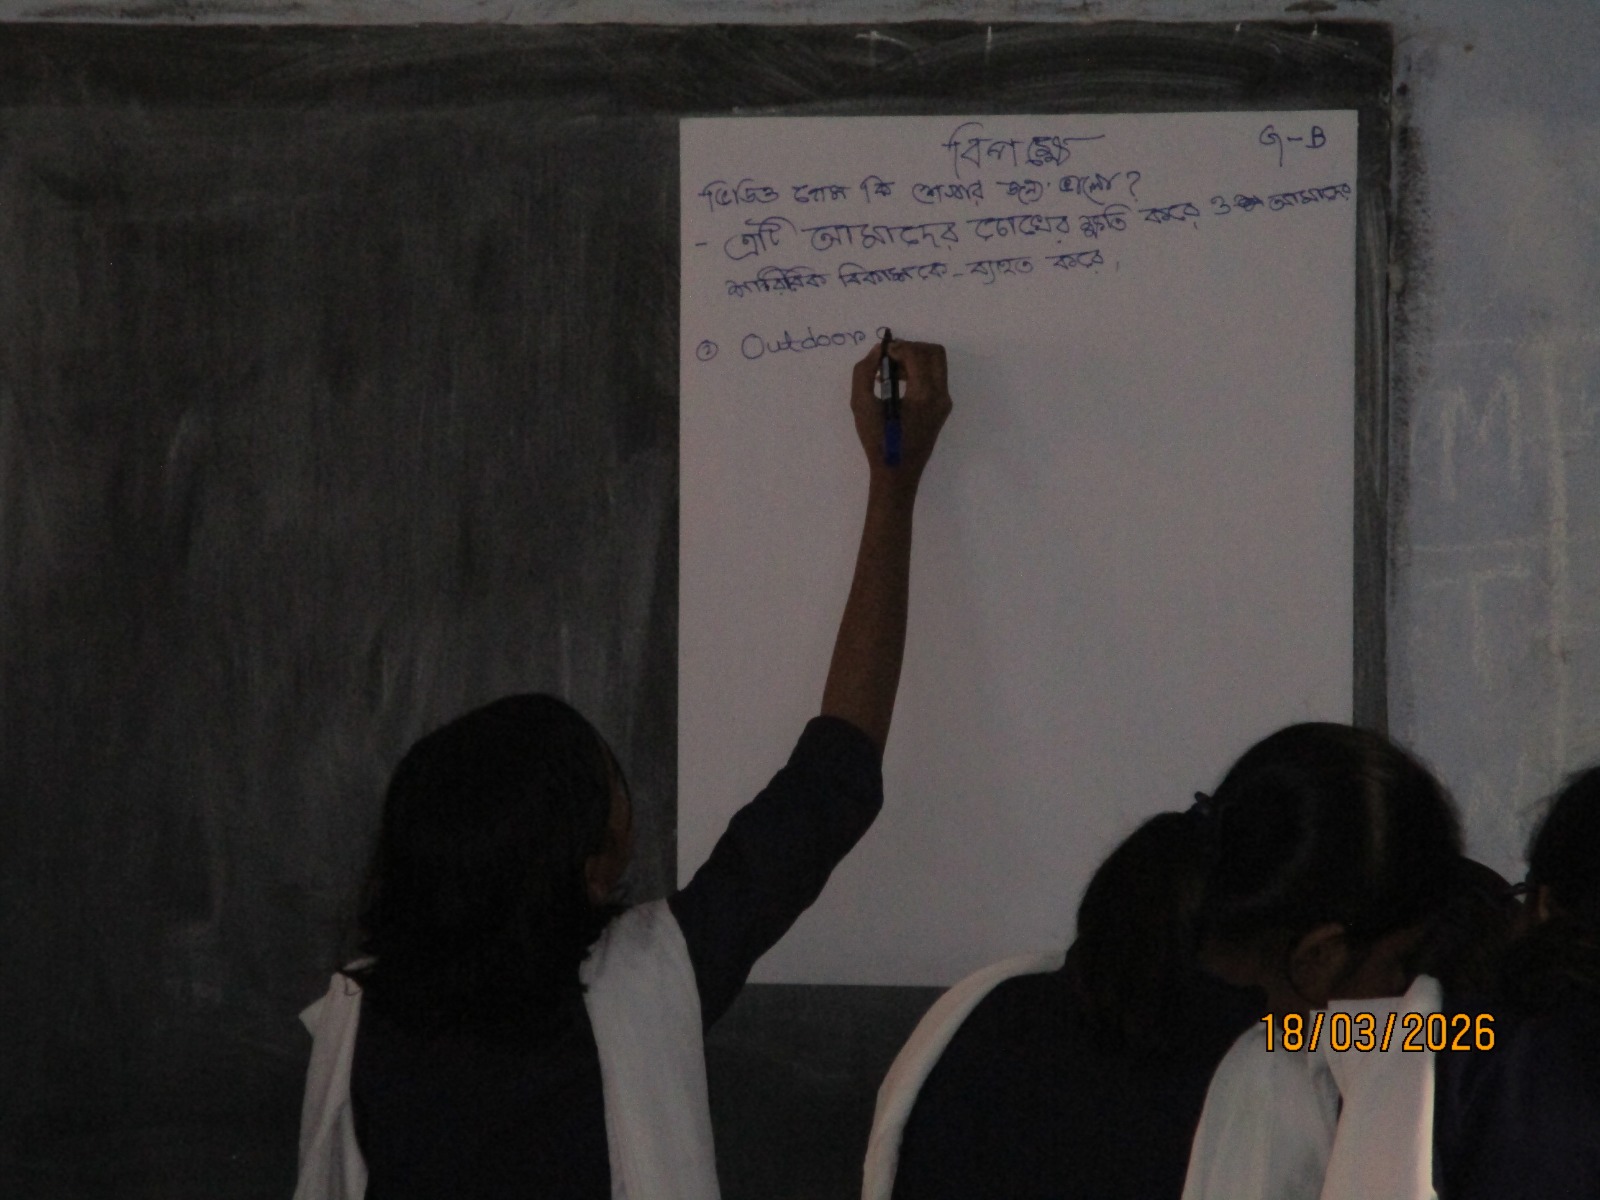 বিপক্ষে
G-B
ভিডিও গেম কি শেখার জন্য ভালো?
- এটি আমাদের চোখের ক্ষতি করে ও আমাদের
শারিরিক বিকাশকে ব্যহত করে,
② Outdoor
18/03/2026